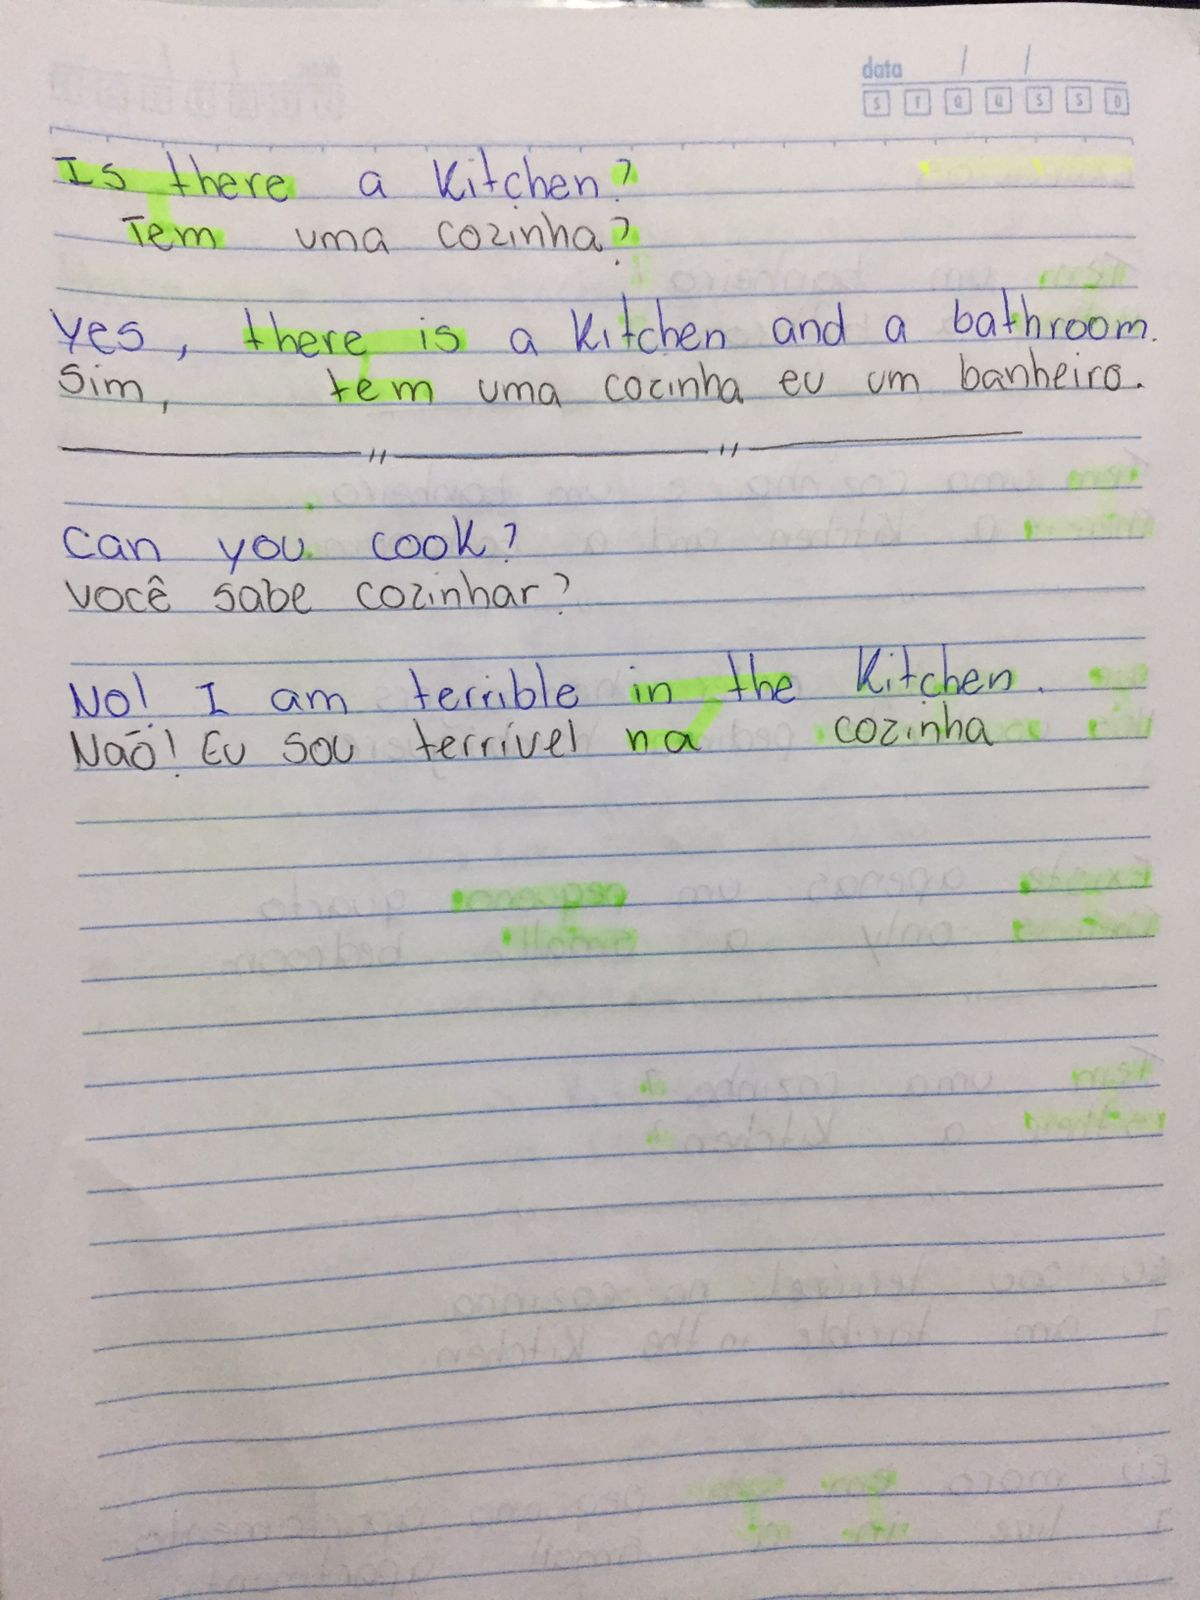 data / /
S T Q Q S S D
Is there a kitchen?
Tem uma cozinha?
Yes, there is a kitchen and a bathroom.
Sim, tem uma cocinha eu um banheiro.
Can you cook?
Você sabe cozinhar?
No! I am terrible in the kitchen.
Não! Eu sou terrível na cozinha